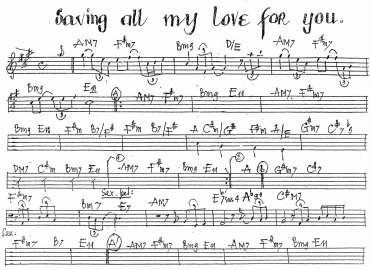 Saving all my Love for you.
AM7 F#m7 Bm9 D/E AM7 F#m7
Bm9 E11 A AM7 F#m7 Bm9 E11 AM7 F#m7
Bm9 E11 F#m B7/F# F#m B7/F# A C#m/G# F#m A/E G#m7 C#7
DM7 C#m7 Bm7 E11 AM7 F#m7 Bm7 E11 A B G#m7 C#7
F#m7 Bm7 E7 AM7 C#M7
Sax.
F#m7 B7 E11 A AM7 F#m7 Bm9 E11 AM7 F#m7 Bm9 E11